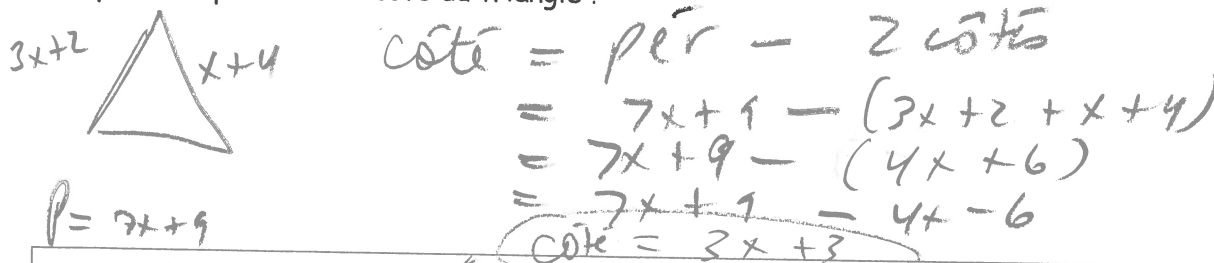 du triangle ?
3x+2
x+4
côté = pér - 2 côtés
= 7x+9 - (3x+2 + x+4)
= 7x+9 - (4x+6)
= 7x+9 - 4x-6
P= 7x+9
côté = 3x+3